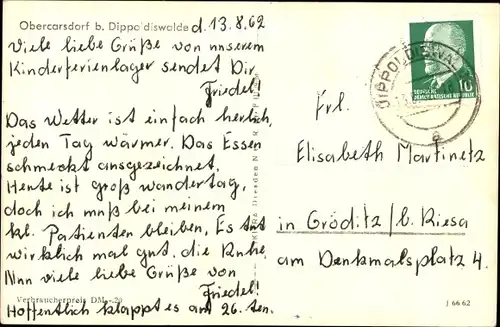 Obercarsdorf b. Dippoldiswalde d. 13.8.62
Viele liebe Grüße von unserem
Kinderferienlager sendet Dir
Friedel!
Das Wetter ist einfach herlich,
jeden Tag wärmer. Das Essen
schmeckt ausgezeichnet.
Heute ist groß wandertag,
doch ich muß bei meinem
kl. Patienten bleiben. Es tut
wirklich mal gut, die Ruhe.
Nun viele liebe Grüße von
Friedel!
Hoffentlich klappt es am 26. ten.
Verbraucherpreis DM -.20
DIPPOLDISWALDE
DEUTSCHE
DEMOKRATISCHE REPUBLIK
10
Frl.
Elisabeth Martinetz
in Gröditz / b. Riesa
am Denkmalsplatz 4.
J 66 62